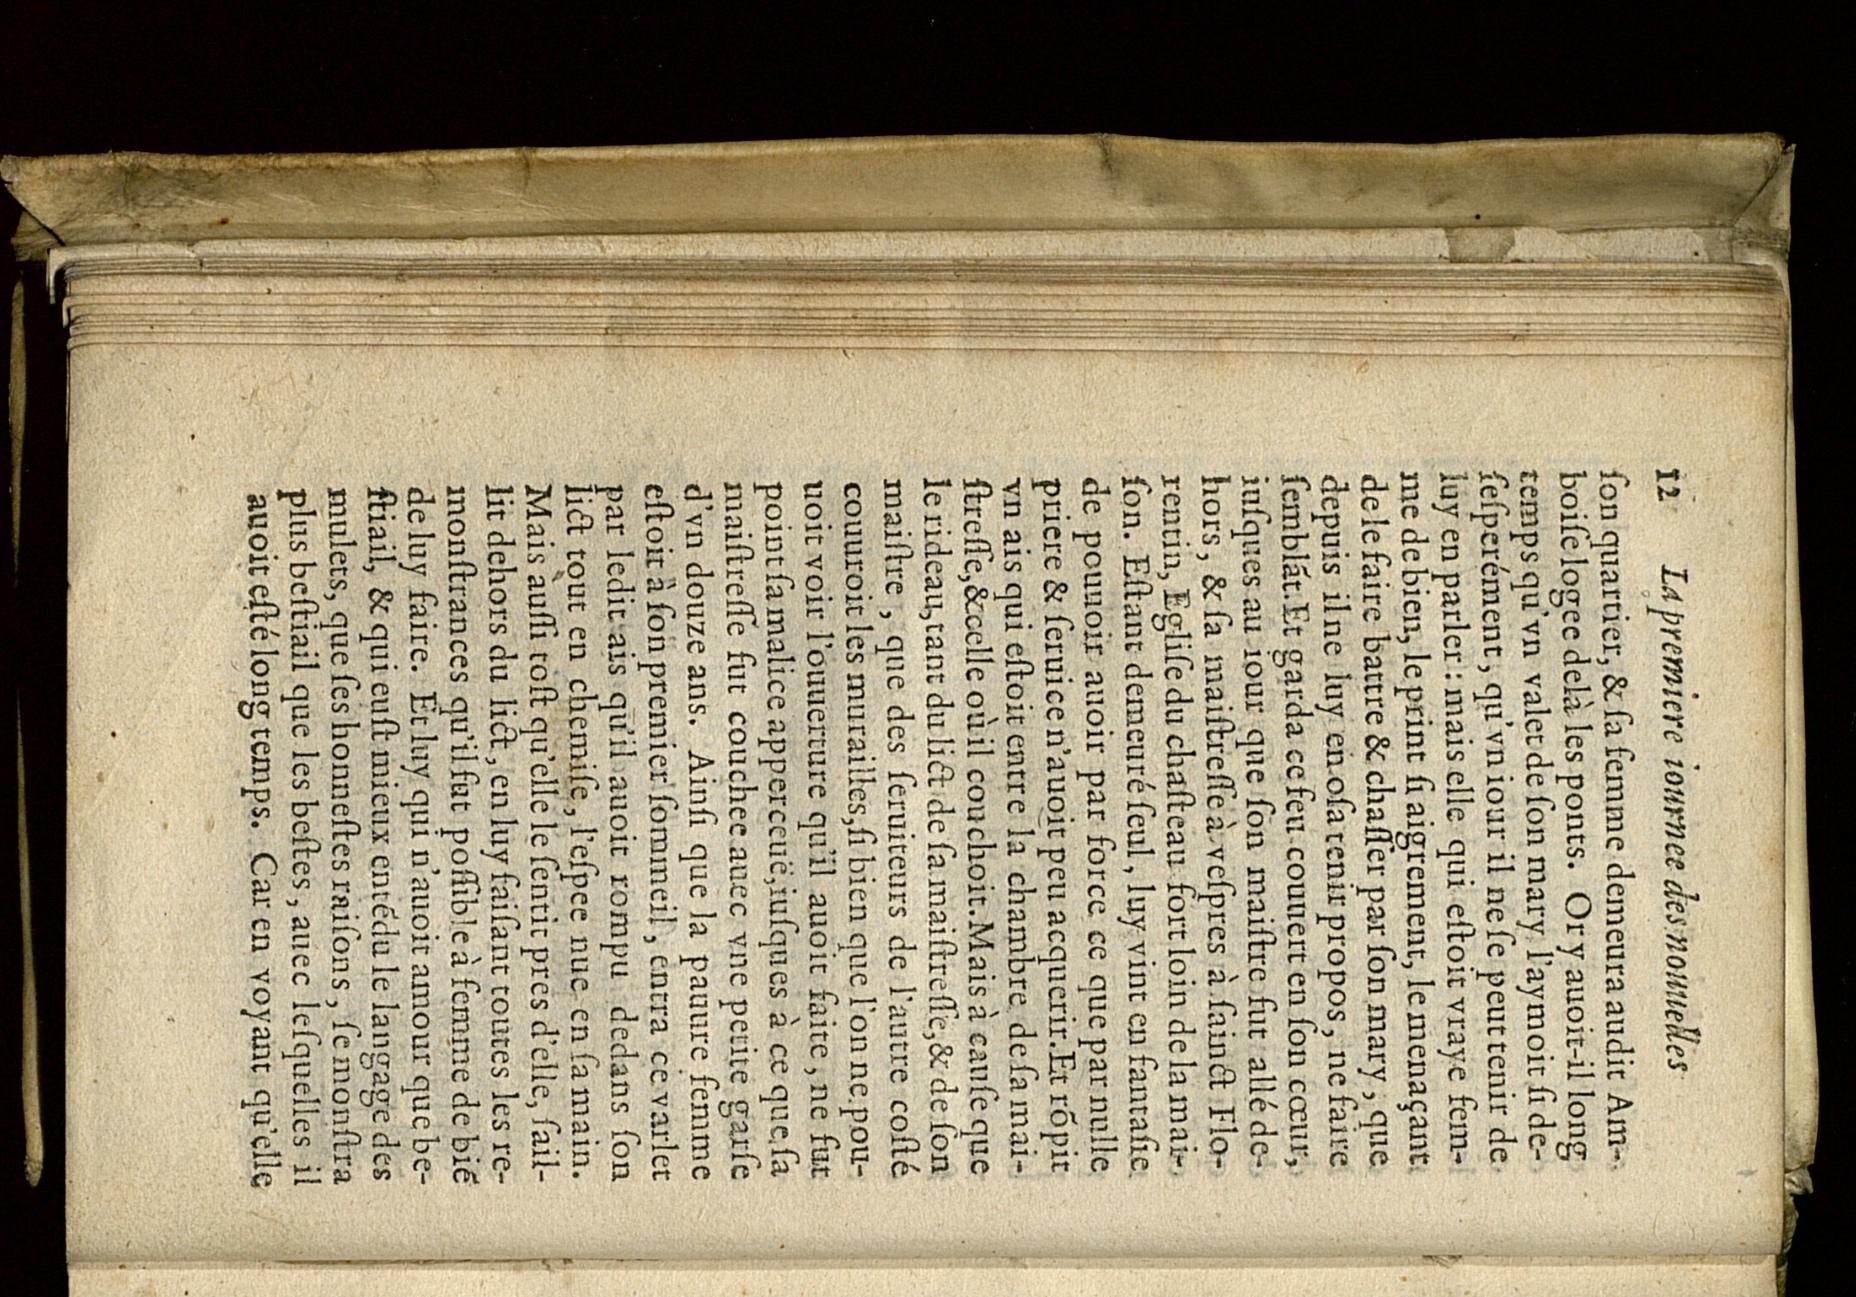 12 La premiere iournee des nouuelles
ſon quartier, & ſa femme demeura audit Am-
boiſe logee delà les ponts. Or y auoit-il long
temps qu'vn valet de ſon mary l'aymoit ſi de-
ſeſperément, qu'vn iour il ne ſe peut tenir de
luy en parler: mais elle qui eſtoit vraye fem-
me de bien, le print ſi aigrement, le menaçant
de le faire battre & chaſſer par ſon mary, que
depuis il ne luy en oſa tenir propos, ne faire
ſemblāt. Et garda ce feu couuert en ſon cœur,
iuſques au iour que ſon maiſtre fut allé de-
hors, & ſa maiſtreſſe à veſpres à ſainct Flo-
rentin, Egliſe du chaſteau fort loin de la mai-
ſon. Eſtant demeuré ſeul, luy vint en fantaſie
de pouuoir auoir par force ce que par nulle
priere & ſeruice n'auoit peu acquerir. Et rōpit
vn ais qui eſtoit entre la chambre de ſa mai-
ſtreſſe, & celle où il couchoit. Mais à cauſe que
le rideau, tant du lict de ſa maiſtreſſe, & de ſon
maiſtre, que des ſeruiteurs de l'autre coſté
couuroit les murailles, ſi bien que l'on ne pou-
uoit voir l'ouuerture qu'il auoit faite, ne fut
point ſa malice apperceuë, iuſques à ce que ſa
maiſtreſſe fut couchee auec vne petite garſe
d'vn douze ans. Ainſi que la pauure femme
eſtoit à ſon premier ſommeil, entra ce varlet
par ledit ais qu'il auoit rompu dedans ſon
lict tout en chemiſe, l'eſpee nue en ſa main.
Mais auſſi toſt qu'elle le ſentit pres d'elle, ſail-
lit dehors du lict, en luy faiſant toutes les re-
monſtrances qu'il fut poſſible à femme de biē
de luy faire. Et luy qui n'auoit amour que be-
ſtiail, & qui euſt mieux entēdu le langage des
mulets, que ſes honneſtes raiſons, ſe monſtra
plus beſtiail que les beſtes, auec leſquelles il
auoit eſté long temps. Car en voyant qu'elle